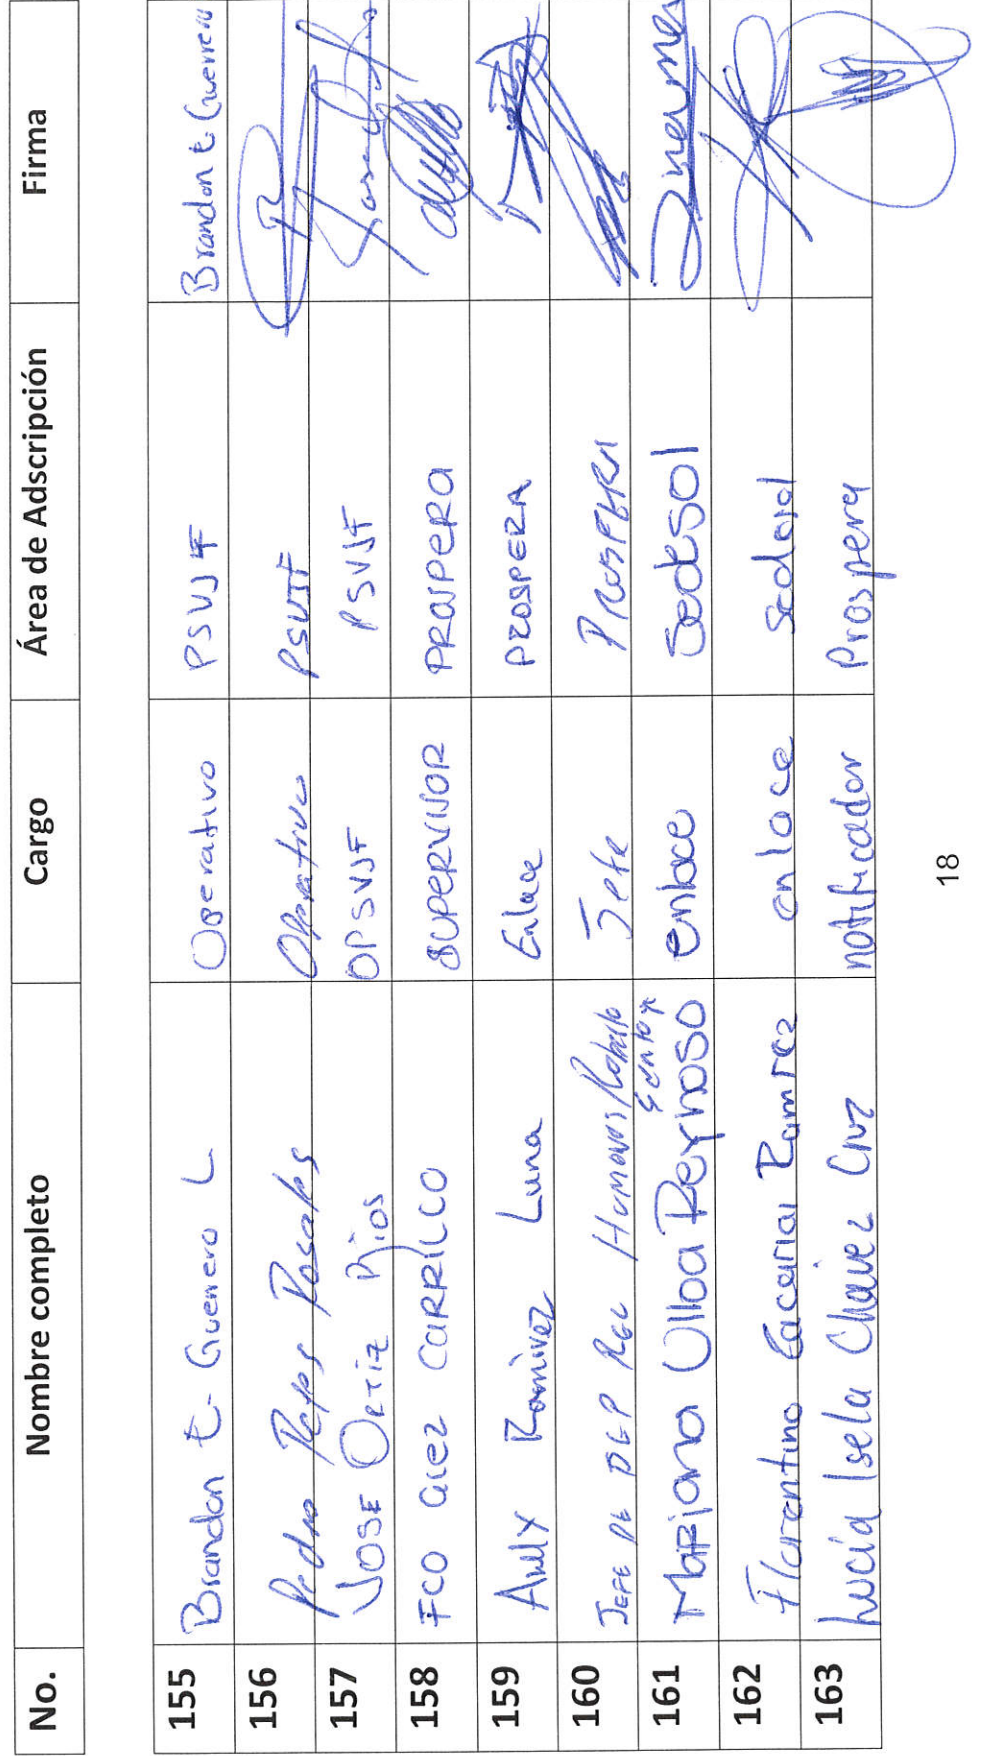 No. Nombre completo Cargo Área de Adscripción Firma
155 Brandon E. Guerrero L Operativo PSVJF Brandon E. Guerrero
156 Pedro Reyes Rosales Operativo PSVJF
157 JOSE ORTIZ Rios OPSVJF PSVJF
158 FCO CARRILCO SUPERVISOR PROSPERA
159 Ramirez Luna Enlace PROSPERA
160 JEFE DE DEP REC HUMANOS/Roberto Jefe PROSPERA
161 Mariana Ulloa Reynoso enlace Sedesol
162 Florentino Ramirez enlace Sedesol
163 Lucia Isela Chavez Cruz notificador Prospera
18